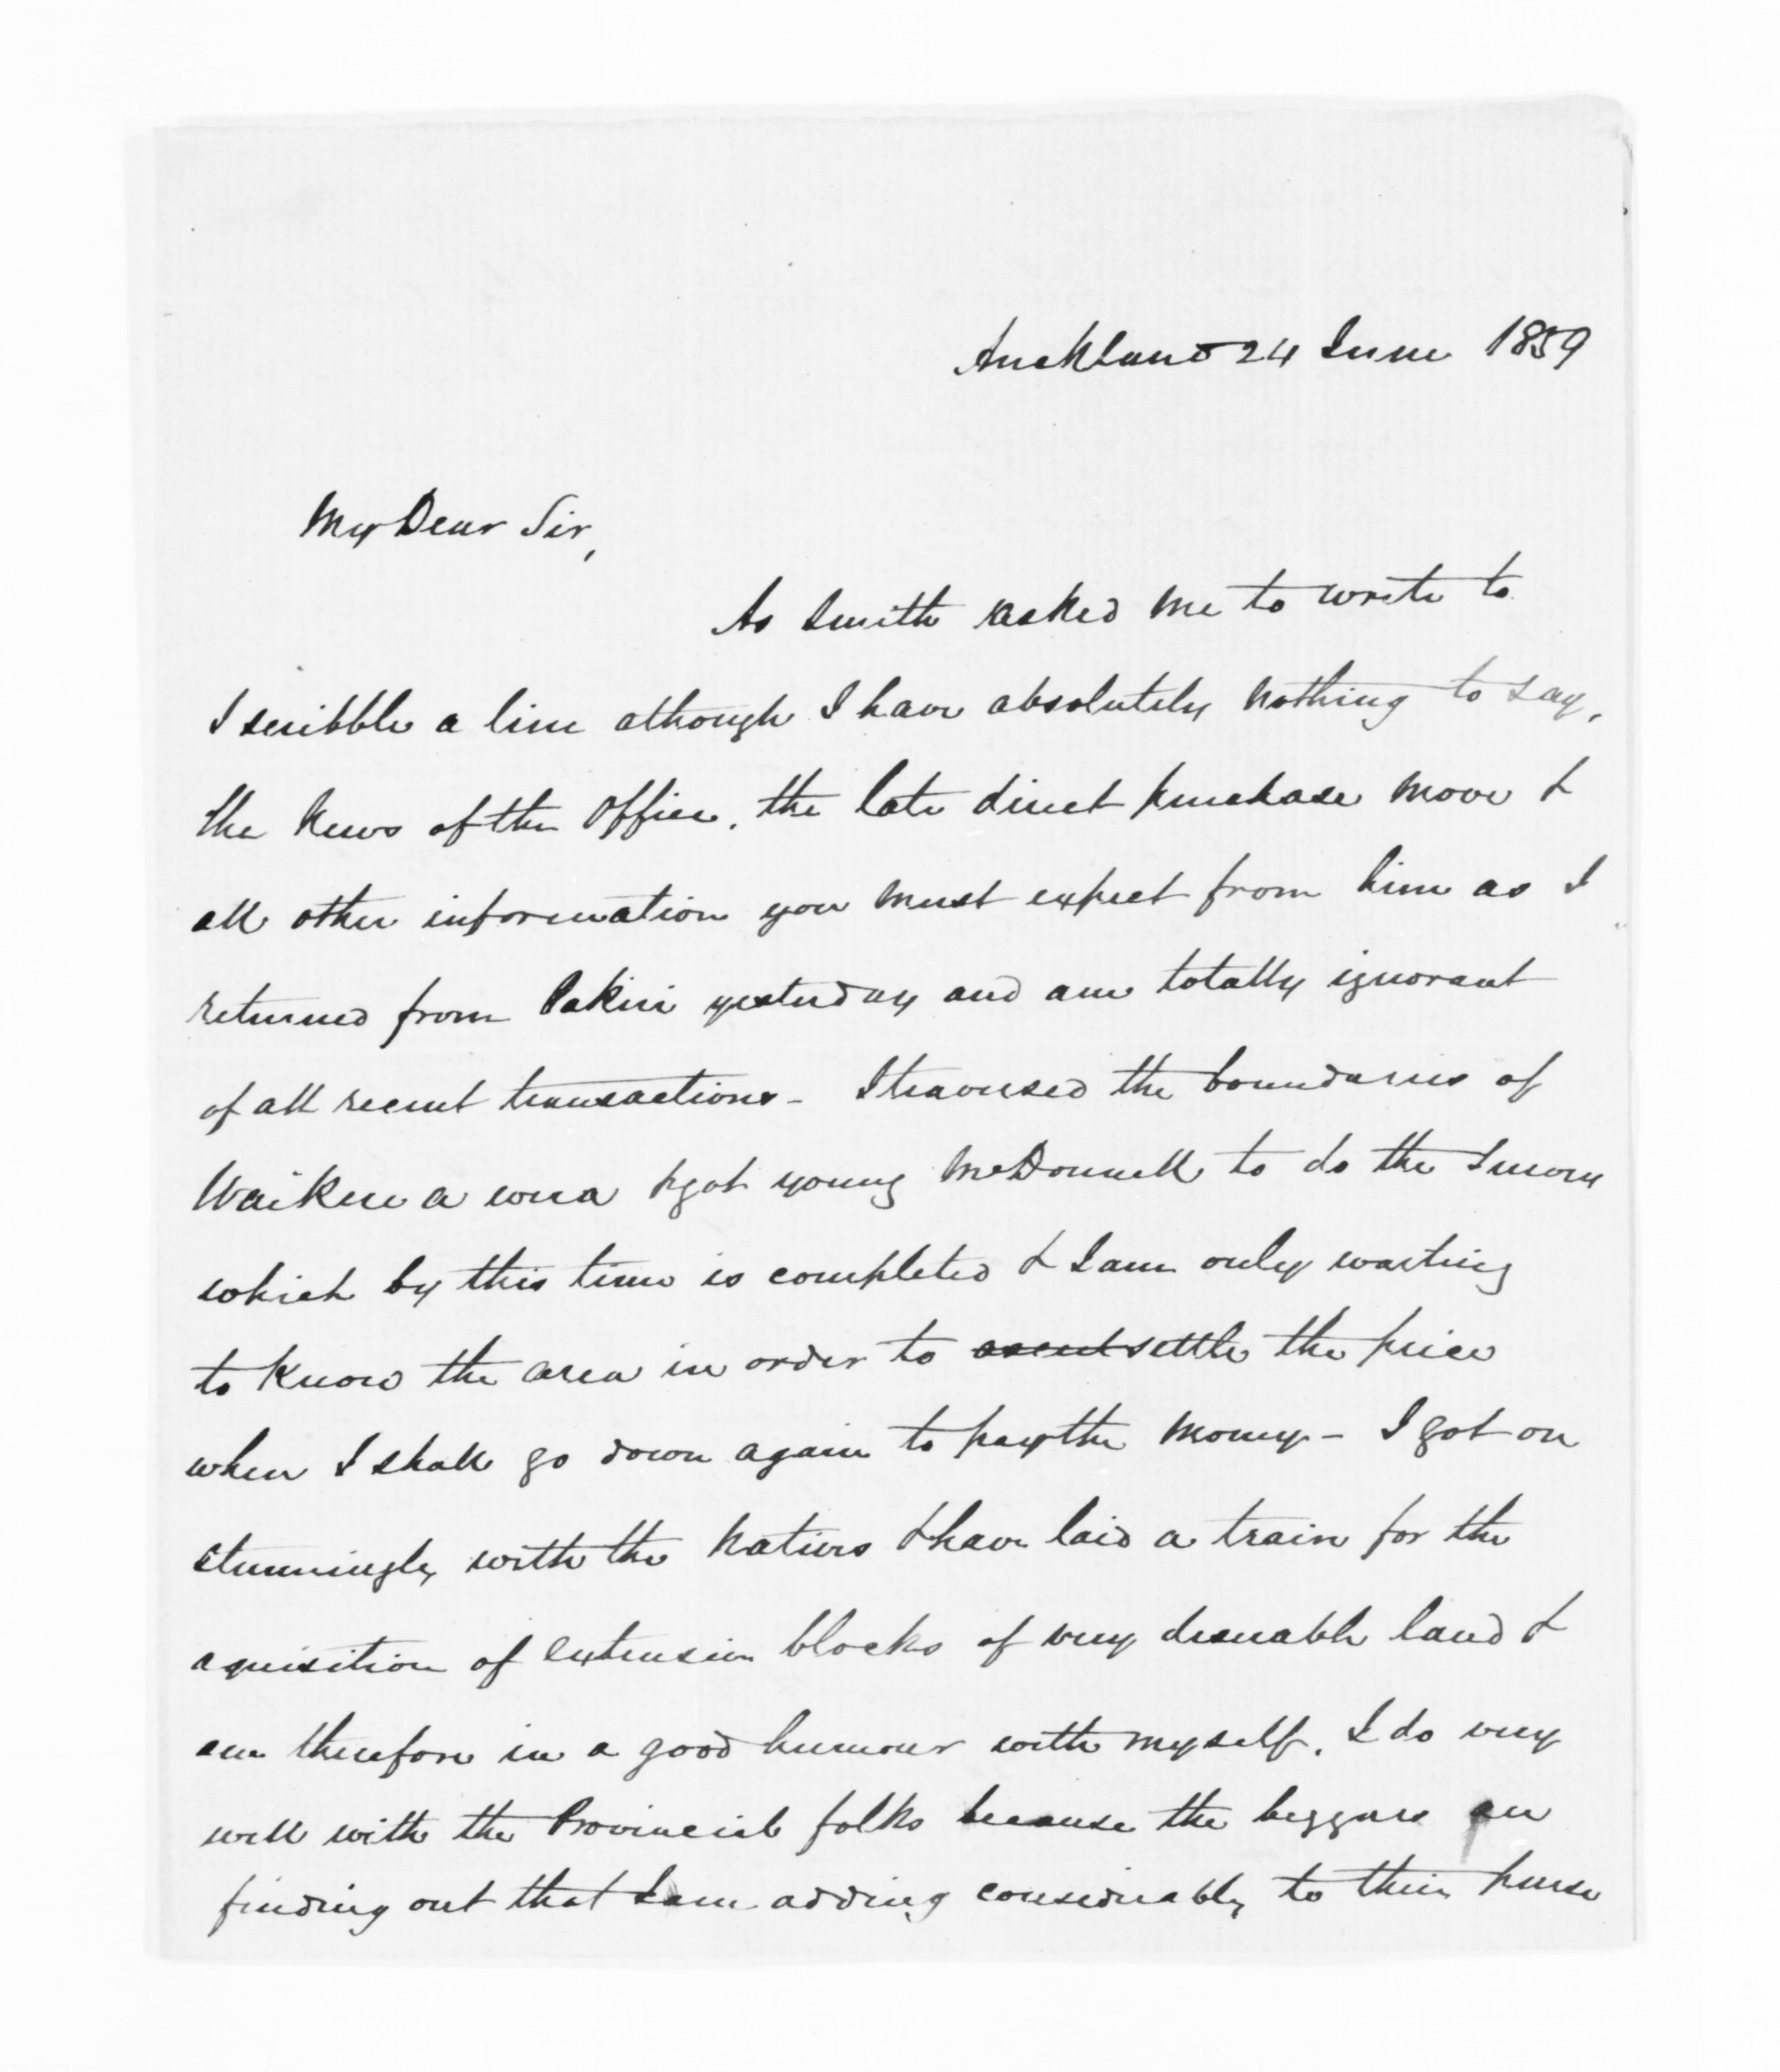 Auckland 24 June 1859
My Dear Sir,
As Smith asked me to write to
I scribble a line although I have absolutely nothing to say,
the news of the Office, the late direct purchase move &
all other information you must expect from him as I
returned from Pakiri yesterday and am totally ignorant
of all recent transactions - I traversed the boundaries of
Waikereawera & got young McDonnell to do the Survey
which by this time is completed & I am only waiting
to know the area in order to settle the price
when I shall go down again to pay the money - I got on
stunningly with the Natives & have laid a train for the
aquisition of extensive blocks of very desirable land &
am therefore in a good humour with myself. I do very
well with the Provincial folks because the beggars are
finding out that I am adding considerably to their purse